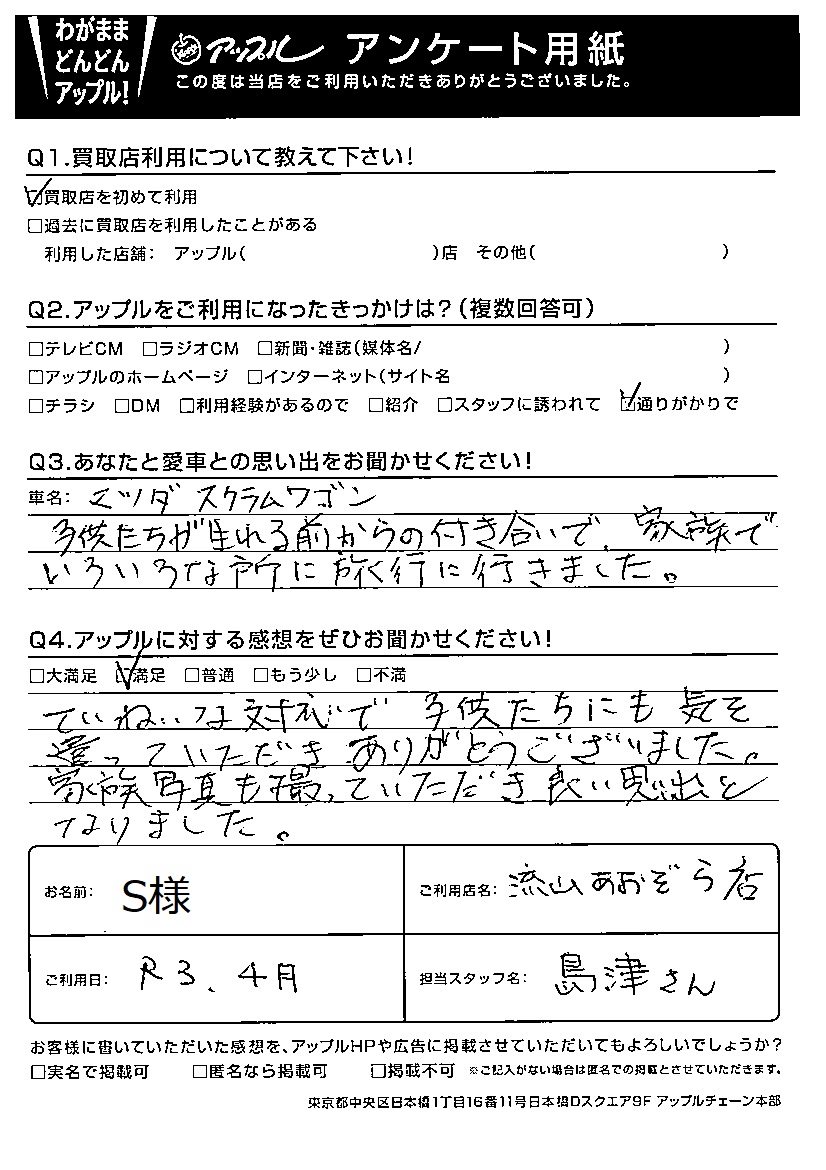 わがまま
どんどん
アップル!
アップル アンケート用紙
この度は当店をご利用いただきありがとうございました。
Q1.買取店利用について教えて下さい!
☑買取店を初めて利用
□過去に買取店を利用したことがある
利用した店舗: アップル( )店 その他( )
Q2.アップルをご利用になったきっかけは?(複数回答可)
□テレビCM □ラジオCM □新聞・雑誌(媒体名/ )
□アップルのホームページ □インターネット(サイト名 )
□チラシ □DM □利用経験があるので □紹介 □スタッフに誘われて ☑通りがかりで
Q3.あなたと愛車との思い出をお聞かせください!
車名: マツダ スクラムワゴン
子供たちが生れる前からの付き合いで、家族で
いろいろな所に旅行に行きました。
Q4.アップルに対する感想をぜひお聞かせください!
□大満足 ☑満足 □普通 □もう少し □不満
ていねいな対応で 子供たちにも気を
遣っていただきありがとうございました。
家族写真も撮っていただき良い思出と
なりました。
お名前: S様
ご利用店名: 流山あおぞら店
ご利用日: R3.4月
担当スタッフ名: 島津さん
お客様に書いていただいた感想を、アップルHPや広告に掲載させていただいてもよろしいでしょうか?
□実名で掲載可 □匿名なら掲載可 □掲載不可 ※ご記入がない場合は匿名での掲載とさせていただきます。
東京都中央区日本橋1丁目16番11号日本橋Dスクエア9F アップルチェーン本部